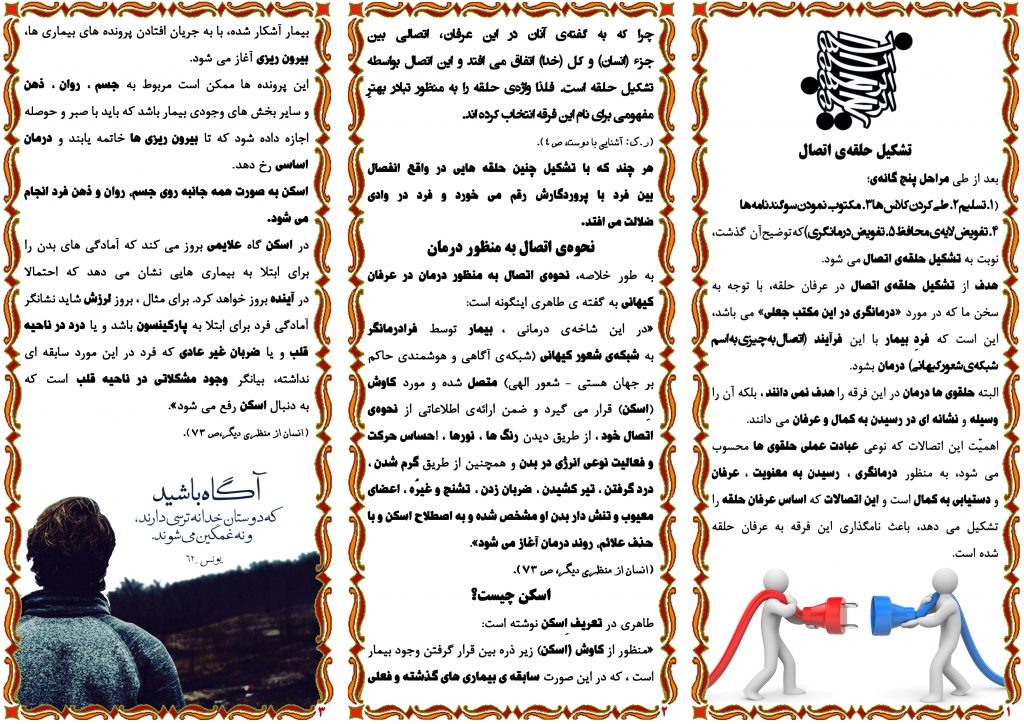 تشکیل حلقه‌ی اتصال
بعد از طی مراحل پنج گانه‌ی؛
(۱. تسلیم ۲. طی کردن کلاس ها ۳. مکتوب نمودن سوگندنامه ها
۴. تفویض لایه‌ی محافظ ۵. تفویض درمانگری) که توضیح آن گذشت،
نوبت به تشکیل حلقه‌ی اتصال می شود.
هدف از تشکیل حلقه‌ی اتصال در عرفان حلقه، با توجه به
سخن ما که در مورد «درمانگری در این مکتب جعلی» می باشد،
این است که فردِ بیمار با این فرآیند (اتصال به چیزی به اسم
شبکه‌ی شعور کیهانی) درمان بشود.
البته حلقوی ها درمان در این فرقه را هدف نمی دانند ، بلکه آن را
وسیله و نشانه ای در رسیدن به کمال و عرفان می دانند.
اهمیّت این اتصالات که نوعی عبادت عملی حلقوی ها محسوب
می شود، به منظور درمانگری ، رسیدن به معنویت ، عرفان
و دستیابی به کمال است و این اتصالات که اساس عرفان حلقه را
تشکیل می دهد، باعث نامگذاری این فرقه به عرفان حلقه
شده است.
۱
چرا که به گفته‌ی آنان در این عرفان، اتصالی بین
جزء (انسان) و کل (خدا) اتفاق می افتد و این اتصال بواسطه
تشکیل حلقه است. فلذا واژه‌ی حلقه را به منظور تبادر بهترِ
مفهومی برای نام این فرقه انتخاب کرده اند.
(ر.ک: آشنایی با دوست، ص ۴).
هر چند که با تشکیل چنین حلقه هایی در واقع انفصال
بین فرد با پروردگارش رقم می خورد و فرد در وادی
ضلالت می افتد.
نحوه‌ی اتصال به منظور درمان
به طور خلاصه، نحوه‌ی اتصال به منظور درمان در عرفان
کیهانی به گفته ی طاهری اینگونه است:
«در این شاخه‌ی درمانی ، بیمار توسط فرادرمانگر
به شبکه‌ی شعور کیهانی (شبکه‌ی آگاهی و هوشمندی حاکم
بر جهان هستی - شعور الهی) متصل شده و مورد کاوش
(اِسکن) قرار می گیرد و ضمن ارائه‌ی اطلاعاتی از نحوه‌ی
اتصال خود ، از طریق دیدن رنگ ها ، نورها ، احساس حرکت
و فعالیت نوعی انرژی در بدن و همچنین از طریق گرم شدن ،
درد گرفتن ، تیر کشیدن ، ضربان زدن ، تشنج و غیرّه ، اعضای
معیوب و تنش دار بدن او مشخص شده و به اصطلاح اسکن و با
حذف علائم، روند درمان آغاز می شود».
(انسان از منظری دیگر، ص ۷۳).
اسکن چیست؟
طاهری در تعریف اِسکن نوشته است:
«منظور از کاوش (اسکن) زیر ذره بین قرار گرفتن وجود بیمار
است ، که در این صورت سابقه ی بیماری های گذشته و فعلی
۲
بیمار آشکار شده، با به جریان افتادن پرونده های بیماری ها،
بیرون ریزی آغاز می شود.
این پرونده ها ممکن است مربوط به جسم ، روان ، ذهن
و سایر بخش های وجودی بیمار باشد که باید با صبر و حوصله
اجازه داده شود که تا بیرون ریزی ها خاتمه یابند و درمان
اساسی رخ دهد.
اسکن به صورت همه جانبه روی جسم، روان و ذهن فرد انجام
می شود.
در اسکن گاه علایمی بروز می کند که آمادگی های بدن را
برای ابتلا به بیماری هایی نشان می دهد که احتمالا
در آینده بروز خواهد کرد. برای مثال ، بروز لرزش شاید نشانگر
آمادگی فرد برای ابتلا به پارکینسون باشد و یا درد در ناحیه
قلب و یا ضربان غیر عادی که فرد در این مورد سابقه ای
نداشته، بیانگر وجود مشکلاتی در ناحیه قلب است که
به دنبال اسکن رفع می شود».
(انسان از منظری دیگر، ص ۷۳).
آگاه باشید
که دوستان خدا نه ترسی دارند،
و نه غمگین می شوند.
یونس _ ۶۲
۳